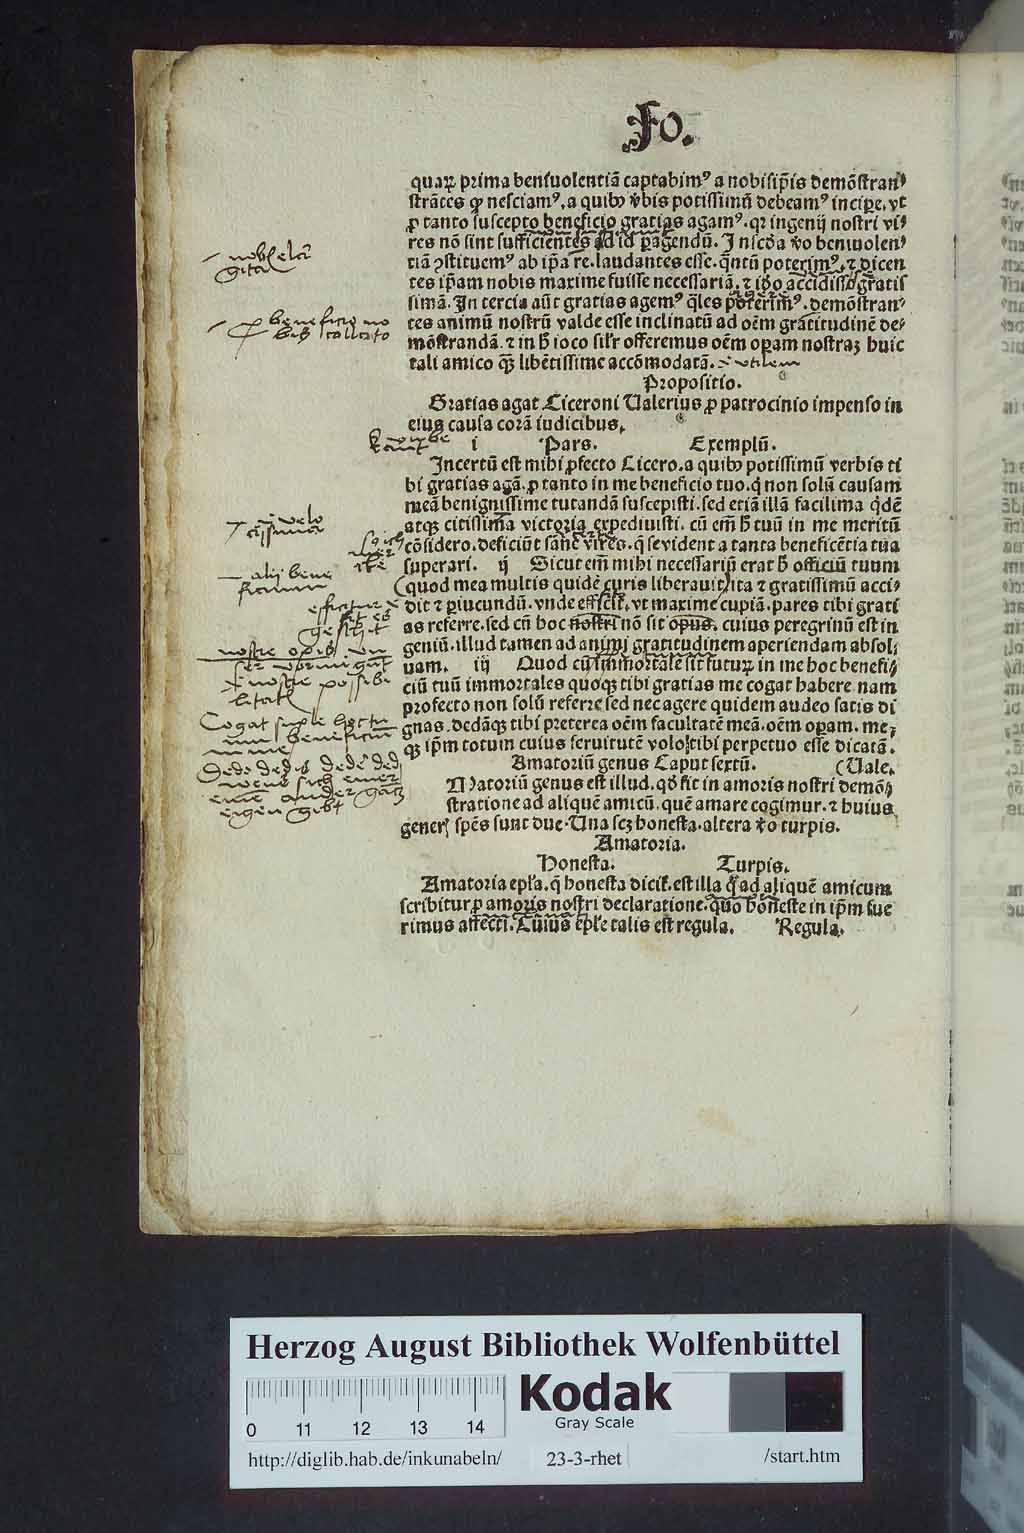 Fo.
quaꝝ prima beniuolentiã captabimꝰ a nobisip̃is demõstran⸗
strãtes ꝙ nesciamꝰ, a quibꝰ v̾bis potissimũ debeamꝰ incipe. vt
ꝓ tanto suscepto beneficio gratias agamꝰ. qꝛ ingenij nostri vi⸗
res nõ sint sufficientes ad id ꝑagendũ. In scḋa v̾o beniuolen⸗
tiã ↄstituemꝰ ab ip̃a re. laudantes esse. q̃ntũ poterimꝰ. ⁊ dicen
tes ip̃am nobis maxime fuisse necessariã. ⁊ iḋo accidisse gratis
simã. In tercia aũt gratias agemꝰ q̃les poterimꝰ. demõstran⸗
tes animũ nostrũ valde esse inclinatũ ad oẽm gratitudinẽ de⸗
mõstrandã. ⁊ in h̃ ioco sil'r offeremus oẽm oꝑam nostraꝫ huic
tali amico q̃ꝫ libẽtissime accõmodatã. vtilem
Propositio.
Gratias agat Ciceroni Ualerius ꝓ patrocinio impenso in
eius causa corã iudicibus.
i Pars. Exemplũ.
Incertũ est mihi ꝓfecto Cicero. a quibꝰ potissimũ verbis ti
bi gratias agã. ꝓ tanto in me beneficio tuo. q̃ non solũ causam
meã benignissime tutandã suscepisti. sed etiã illã facilima q̃dẽ
atqꝫ citissima victoria expediuisti. cũ em̃ h̃ tuũ in me meritũ
cõsidero. deficiũt sanẽ vires. q̃ se vident a tanta beneficẽtia tua
superari. ij Sicut em̃ mihi necessariũ erat h̃ officiũ tuum
(quod mea multis quidẽ curis liberauit) ita ⁊ gratissimũ acci⸗
dit ⁊ ꝑiucundũ. vnde efficit̃. vt maxime cupiã. pares tibi grati
as referre. sed cũ hoc nostri nõ sit opus. cuius peregrinũ est in
geniũ. illud tamen ad animi gratitudinem aperiendam absol⸗
uam. iij Quod cũ immortale sit futuꝝ in me hoc benefi⸗
ciũ tuũ immortales quoqꝫ tibi gratias me cogat habere. nam
profecto non solũ referre sed nec agere quidem audeo satis di
gnas. dedãqꝫ tibi preterea oẽm facultatẽ meã. oẽm oꝑam. me⸗
qꝫ ip̃m totum cuius seruitutẽ volo tibi perpetuo esse dicatã.
Amatoriũ genus Caput sextũ. (Uale.
Matoriũ genus est illud. qḋ fit in amoris nostri demõ⸗
stratione ad aliquẽ amicũ. quẽ amare cogimur. ⁊ huius
generꝭ spẽs sunt due. Una scꝫ honesta. altera v̾o turpis.
Amatoria.
Honesta. Turpis.
Amatoria epl'a. q̃ honesta dicit̃. est illa q̃ ad aliquẽ amicum
scribitur ꝓ amoris nostri declaratione. quo honeste in ip̃m fue
rimus affecti. Cuius epl'e talis est regula. Regula.
beneficio
alij bene
ficium
nostre
nostre possibi
litat
Cogat
beneficiũ
in me
eigen gibt
Herzog August Bibliothek Wolfenbüttel
0 11 12 13 14
Kodak
Gray Scale
http://diglib.hab.de/inkunabeln/ 23-3-rhet /start.htm